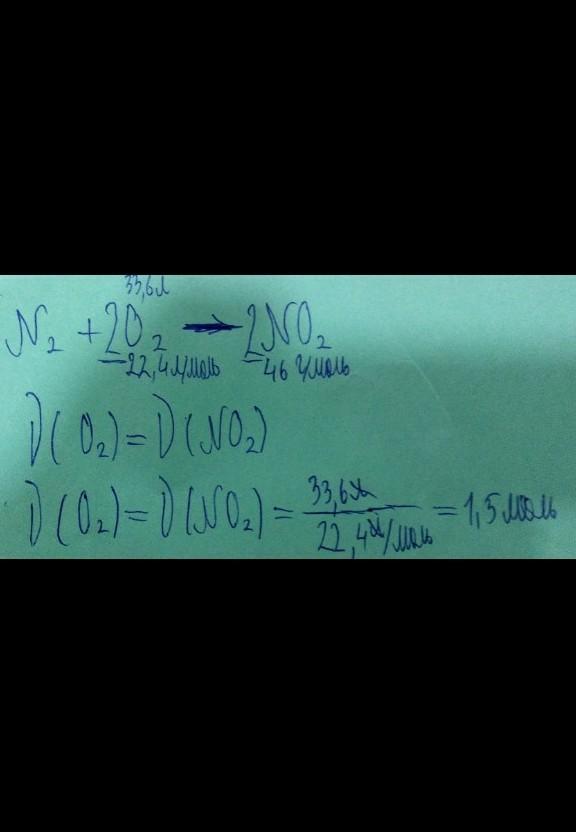 33,6л
N₂ + 2O₂ → 2NO₂
22,4л/моль 46 г/моль
ν(O₂) = ν(NO₂)
ν(O₂) = ν(NO₂) = 33,6л / 22,4л/моль = 1,5 моль